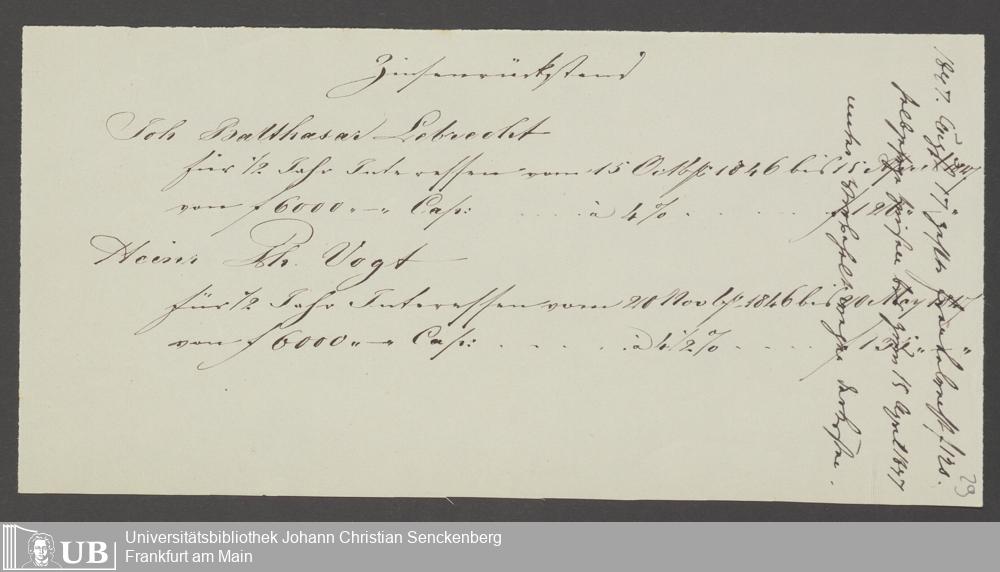 Zinsenrückstand
Joh Balthasar Lebrecht
für 1/2 Jahr Interessen vom 15 Octbr 1846 bis 15 April 1847
von f 6000 „ — „ Cap: . . . . . à 4 % . . . . . f 120 „
Heinr Ph. Vogt
für 1/2 Jahr Interessen vom 20 Novbr 1846 bis 20 May 1847
von f 6000 „ — „ Cap: . . . . . à 4 1/2 % . . . . f 135 „ „
1847. f 120.
Zinsen bis zum 15 April 1847
unter wegen
29
UB
Universitätsbibliothek Johann Christian Senckenberg
Frankfurt am Main